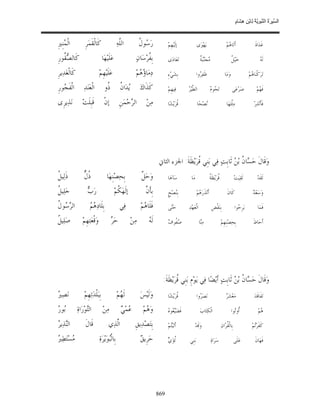 السّيرَةُ النّبَوِيّةُ لابْنِ هِشَامٍ
غَدَاةَ أَتَاهُمْ يَهْوِى إلَيْهِمْ رَسُولُ اللّهِ كَالْقَمَرِ الْمُنِيرِ
لَهُ خَيْلٌ مُجَنّبَةٌ تَعَادَى بِفُرْسَانٍ عَلَيْهَا كَالصّقُورِ
تَرَكْنَاهُمْ وَمَا ظَفِرُوا بِشَيْءِ دِمَاؤُهُمُ عَلَيْهِمْ كَالْغَدِيرِ
فَهُمْ صَرْعَى تَحُومُ الطّيْرُ فِيهِمْ كَذَاكَ يُدَانُ ذُو الْعَنَدِ الْفَجُورِ
فَأَنْذِرْ مِثْلَهَا نُصْحًا قُرَيْشًا مِنْ الرّحْمَنِ إنْ قَبِلَتْ نَذِيرِى
وَقَالَ حَسّانُ بْنُ ثَابِتٍ فِي بَنِي قُرَيْظَةَ: الجزء الثاني
لَقَدْ لَقِيَتْ قُرَيْظَةُ مَا سَآهَا وَحَلّ بِحِصْنِهَا ذُلّ ذَلِيلُ
وَسَعْدٌ كَانَ أَنْذَرَهُمْ بِنُصْحٍ بِأَنّ إلَهَكُمْ رَبّ جَلِيلُ
فَمَا بَرِحُوا بِنَقْضِ الْعَهْدِ حَتّى فَلَاهُمْ فِي بِلَادِهُمُ الرّسُولُ
أَحَاطَ بِحِصْنِهِمْ مِنّا صُفُوفٌ لَهُ مِنْ حَرّ وَقْعَتِهِمْ صَلِيلُ
وَقَالَ حَسّانُ بْنُ ثَابِتٍ أَيْضًا فِي يَوْمِ بَنِي قُرَيْظَةَ:
تَفَاقَدَ مَعْشَرٌ نَصَرُوا قُرَيْشًا وَلَيْسَ لَهُمْ بِبَلْدَتِهِمْ نَصِيرُ
هُمْ أُوتُوا الْكِتَابَ فَضَيّعُوهُ وَهُمْ عُمْيٌ مِنْ التّوْرَاةِ بُورُ
كَفَرْتُمْ بِالْقُرْآنِ وَقَدْ أُتِيتُمْ بِتَصْدِيقِ الّذِي قَالَ النّذِيرُ
فَهَانَ عَلَى سَرَاةِ بَنِي لُؤَيّ حَرِيقٌ بِالْبُوَيْرَةِ مُسْتَطِيرُ
869